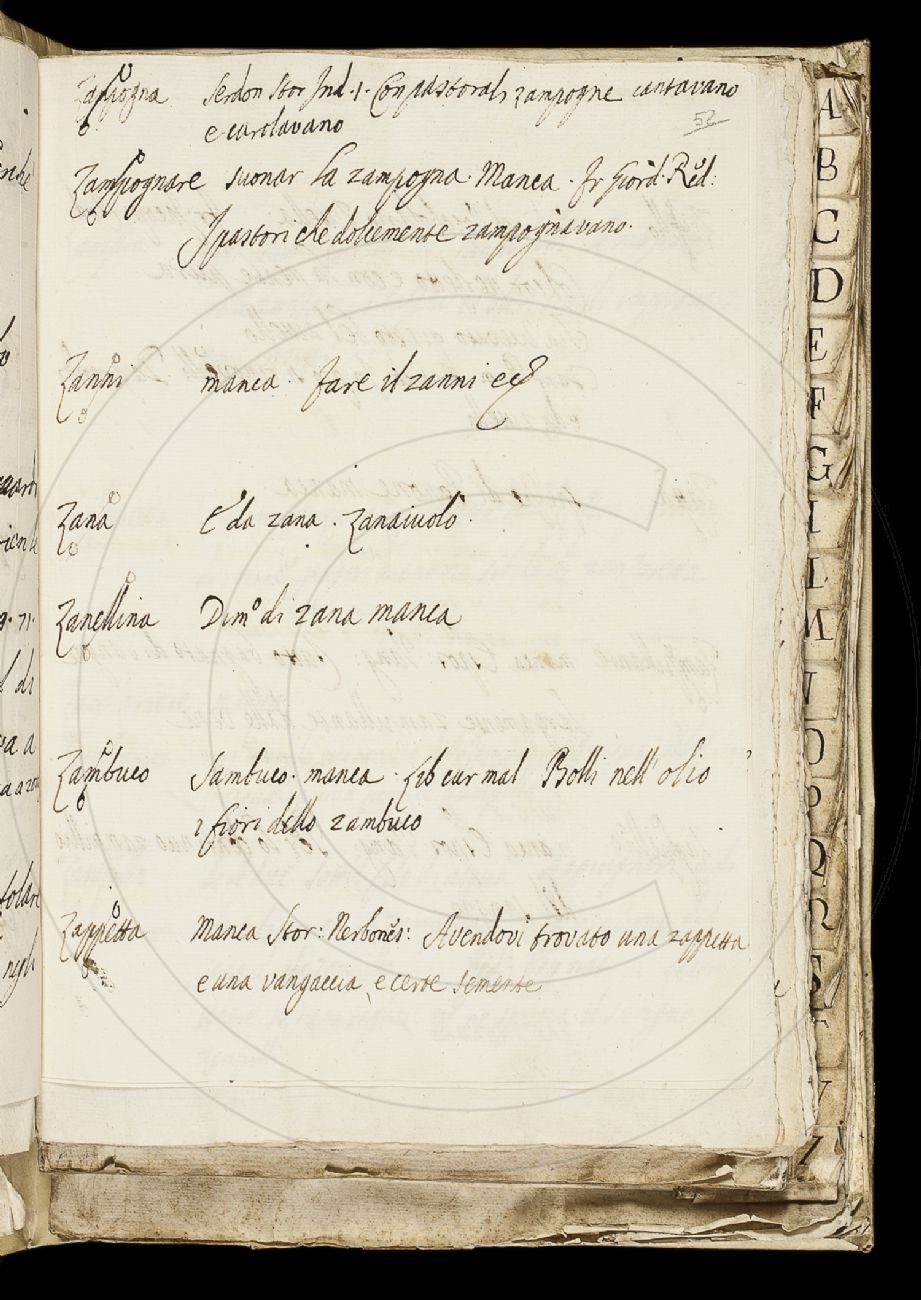 Zampogna Serdon Stor Ind. 1. Con pastorali zampogne cantavano
e carolavano
52
Zampognare suonar la zampogna. Manca. Fr Giord. Red:
I pastori che dolcemente zampognavano.
Zanni manca. fare il zanni
Zana E' da zana. Zanaiuolo.
Zanellina Dim.o di zana manca
Zambuco Sambuco. manca. Lib cur mal Bolli nell'olio
i fiori dello zambuco
Zappetta Manca Stor: Nerbones: Avendovi trovato una zappetta
e una vangaccia, e certe semente
A
B
C
D
E
F
G
I
L
M
N
O
P
Q
R
S
V
Z